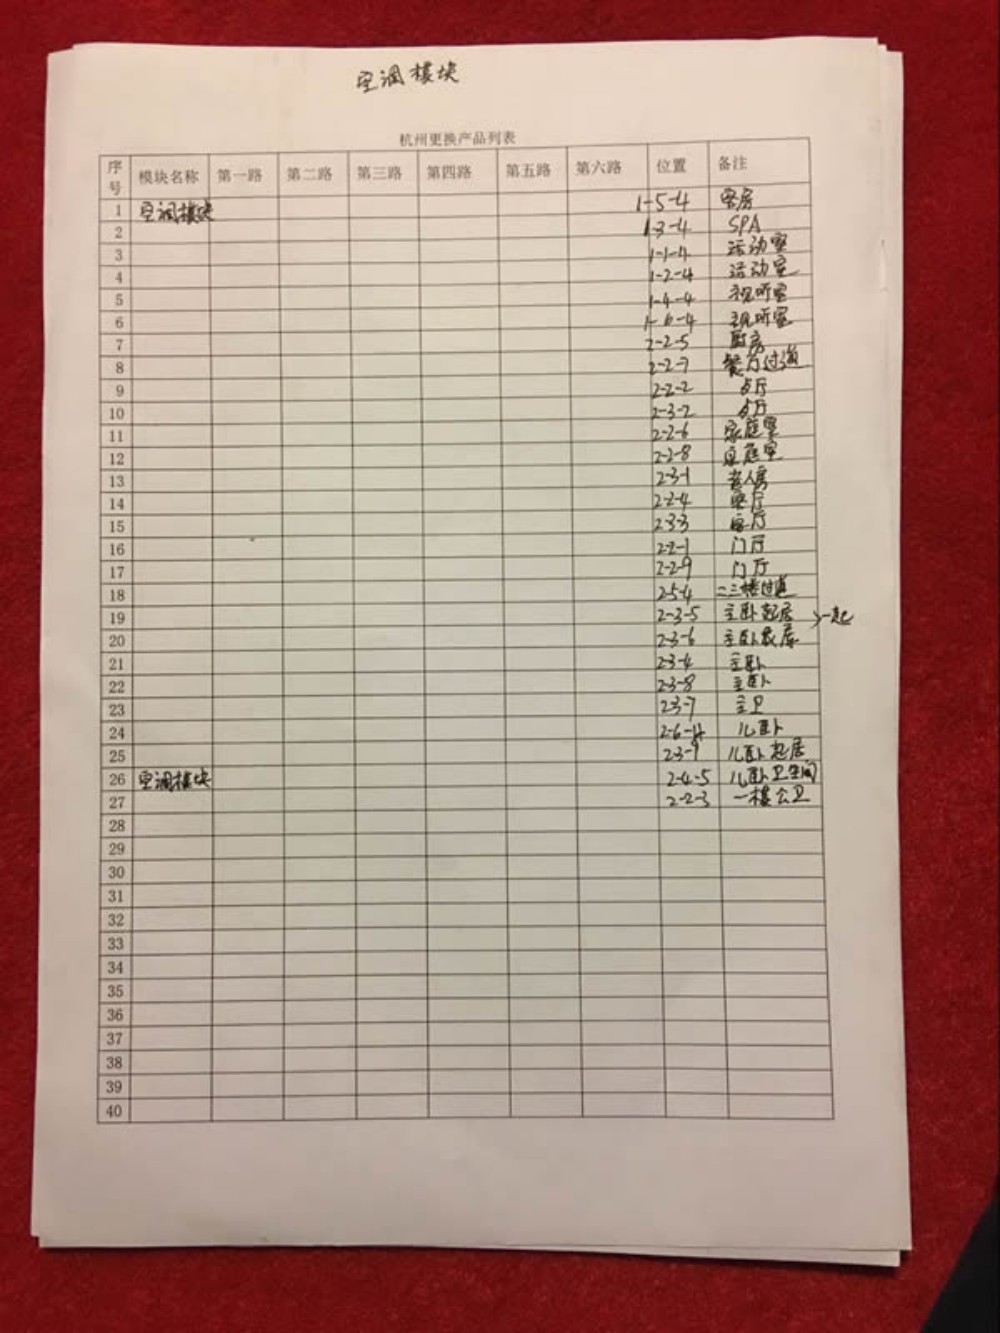 空调模块
杭州更换产品列表
序号 模块名称 第一路 第二路 第三路 第四路 第五路 第六路 位置 备注
1 空调模块 1-5-4 客房
2 1-3-4 SPA
3 1-1-4 活动室
4 1-2-4 活动室
5 1-4-4 视听室
6 1-6-4 视听室
7 2-2-5 厨房
8 2-2-7 餐厅过道
9 2-2-2 厅
10 2-3-2 厅
11 2-2-6 家庭室
12 2-2-8 家庭室
13 2-3-1 老人房
14 2-2-4 客厅
15 2-3-3 客厅
16 2-2-1 门厅
17 2-2-9 门厅
18 2-5-4 二三楼过道
19 2-3-5 主卧起居 一起
20 2-3-6 主卧起居
21 2-3-4 主卧
22 2-3-8 主卧
23 2-3-7 主卫
24 2-6-4 儿卧
25 2-3-9 儿卧起居
26 空调模块 2-4-5 儿卧卫生间
27 2-2-3 一楼公卫
28
29
30
31
32
33
34
35
36
37
38
39
40